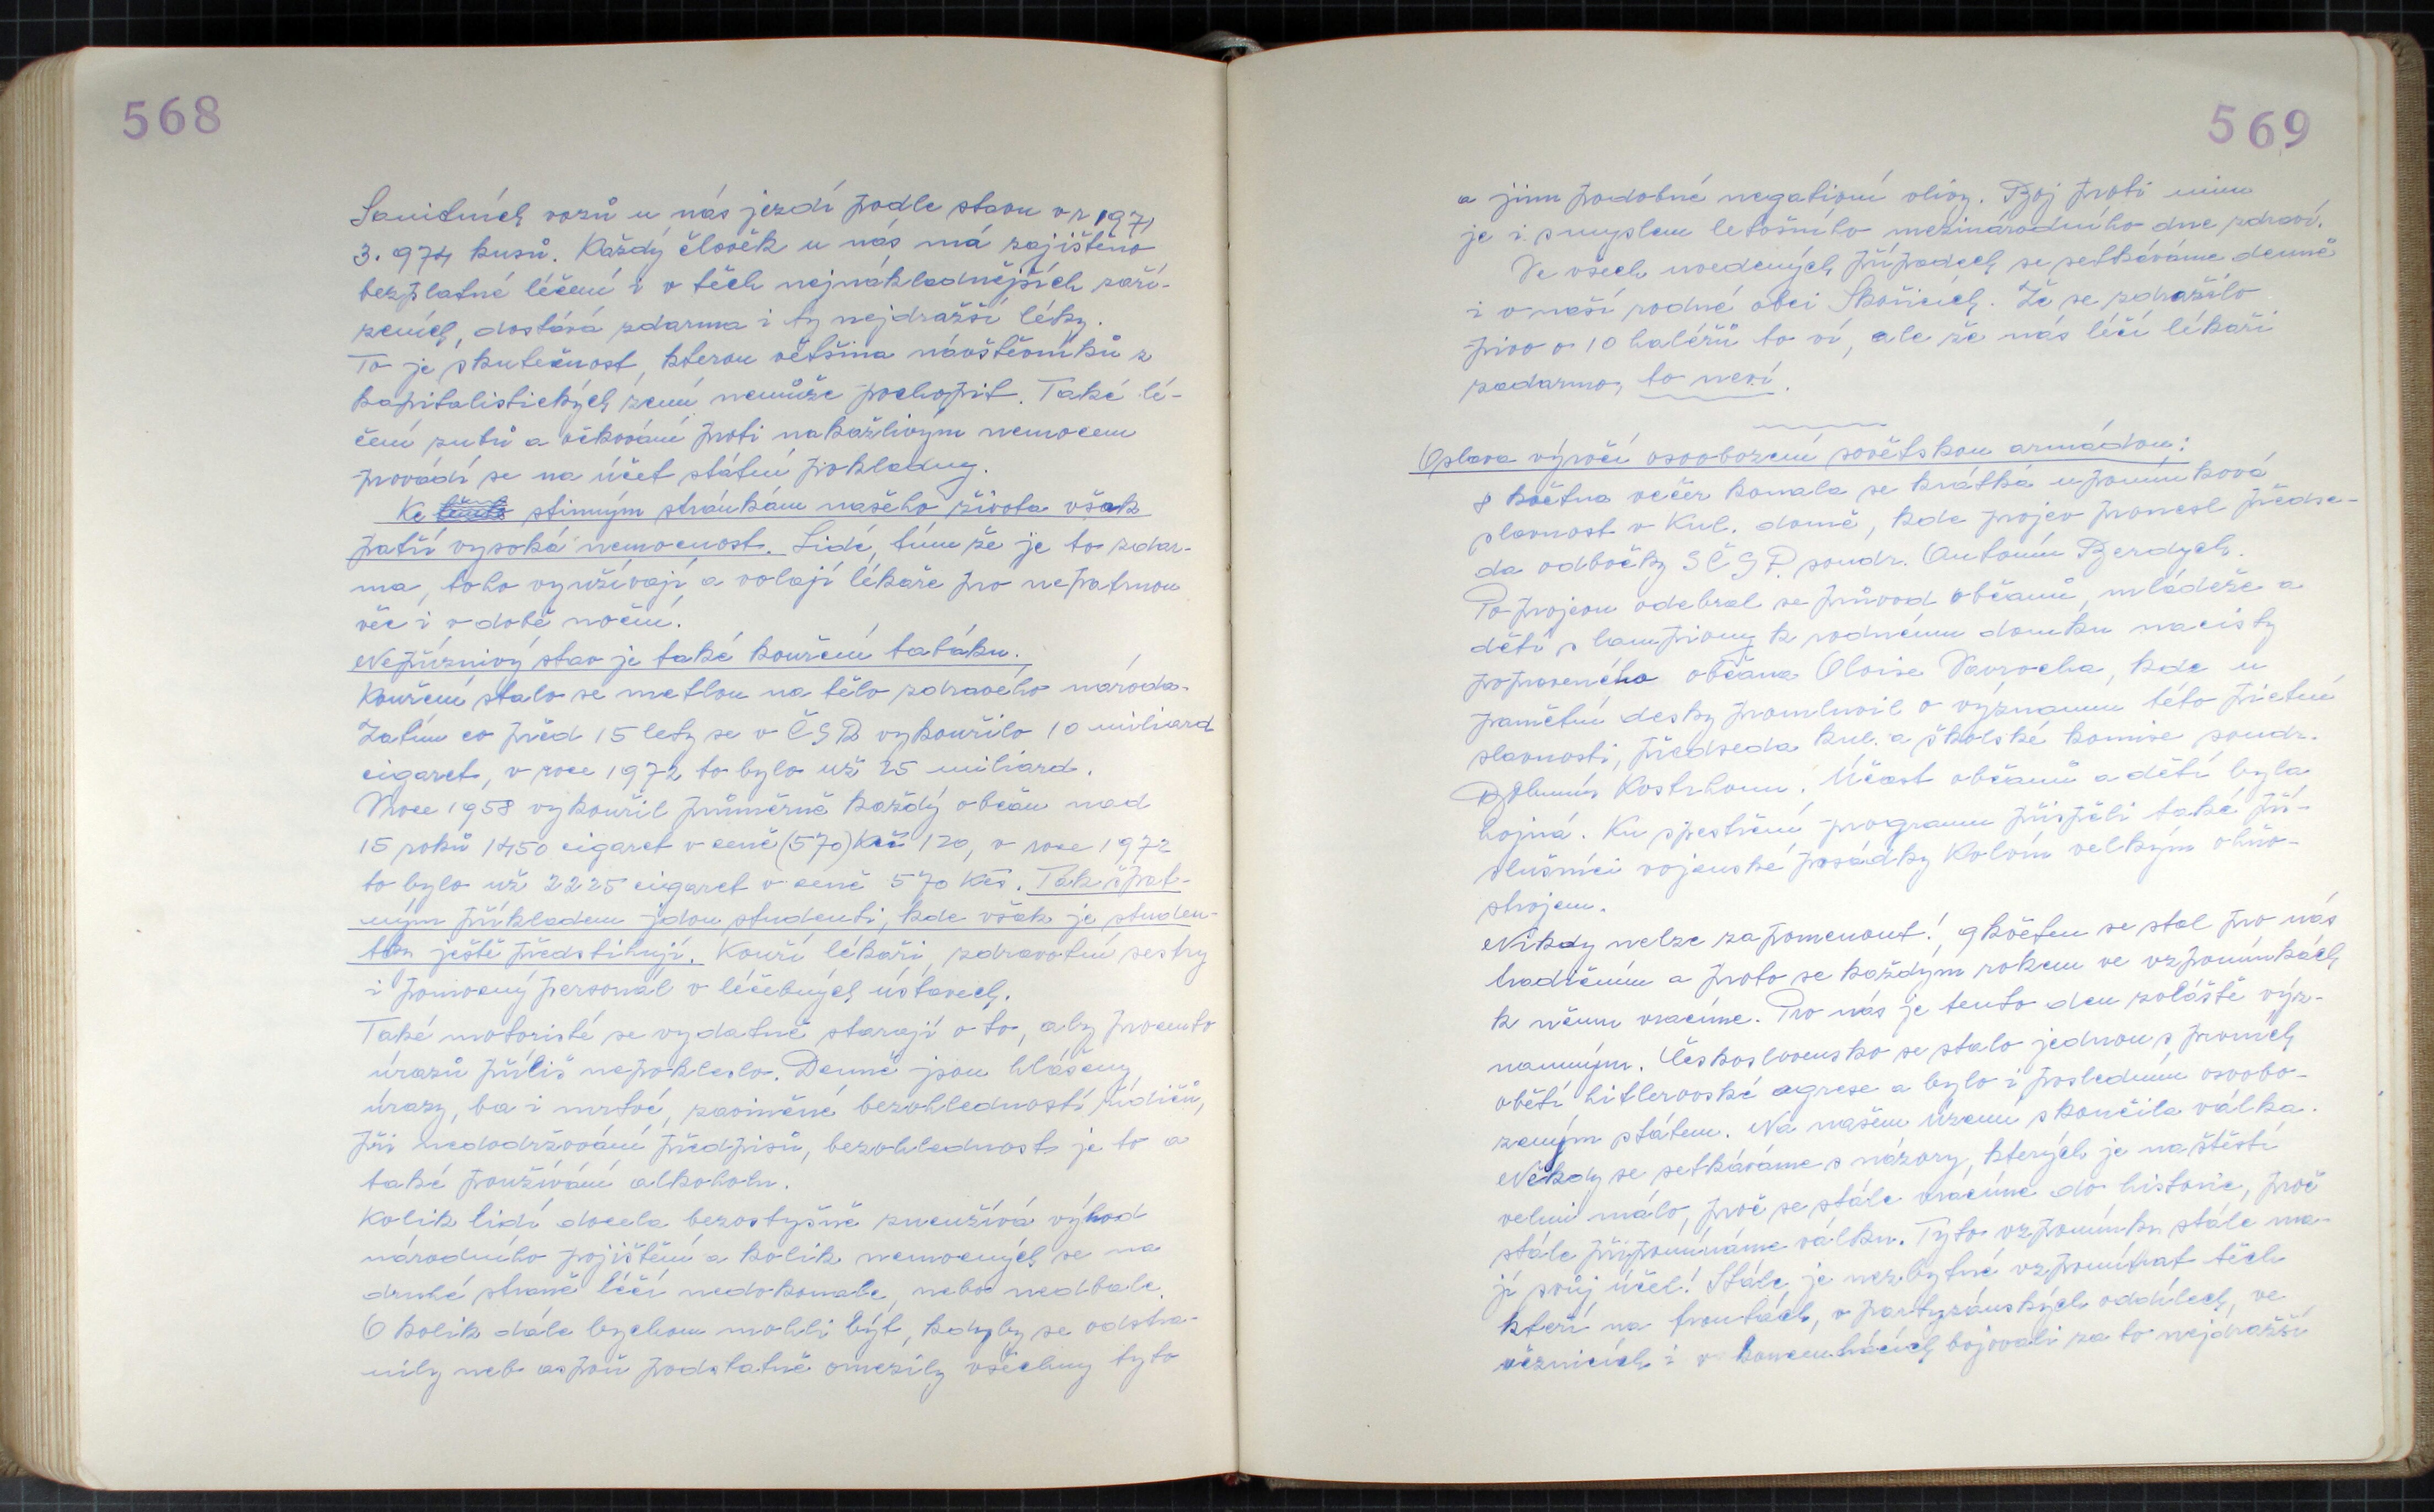 568
Sanitních vozů u nás jezdí podle stavu v r 1971
3.974 kusů. Každý člověk u nás má zajištěno
bezplatné léčení i v těch nejnákladnějších zaří-
zeních, dostává zdarma i ty nejdražší léky.
To je skutečnost, kterou většina návštěvníků z
kapitalistických zemí nemůže pochopit. Také lé-
čení zubů a očkování proti nakažlivým nemocem
provádí se na účet státní pokladny.
Ke stinným stránkám našeho života však
patří vysoká nemocnost. Lidé, tím že je to zdar-
ma, toho využívají a volají lékaře pro nepatrnou
věc i v době noční.
Nepříznivý stav je také kouření tabáku.
Kouření stalo se metlou na tělo zdravého národa.
Zatím co před 15 lety se v ČSR vykouřilo 10 miliard
cigaret, v roce 1972 to bylo už 25 miliard.
V roce 1958 vykouřil průměrně každý občan nad
15 roků 1450 cigaret v ceně (570) Kčs 120, v roce 1972
to bylo už 2225 cigaret v ceně 570 Kčs. Tak špat-
ným příkladem jdou studenti, kde však je studen-
tky ještě předstihují. Kouří lékaři, zdravotní sestry
i pomocný personál v léčebných ústavech.
Také motoristé se vydatně starají o to, aby procento
úrazů příliš nepokleslo. Denně jsou hlášeny
úrazy, ba i mrtvé, zaviněné bezohledností řidičů,
při nedodržování předpisů, bezohlednost je to a
také používání alkoholu.
Kolik lidí docela bezostyšně zneužívá výhod
národního pojištění a kolik nemocných se na
druhé straně léčí nedokonale, nebo nedbale.
O kolik dále bychom mohli být, kdyby se odstra-
nily neb aspoň podstatně omezily všechny tyto
569
a jim podobné negativní vlivy. Boj proti nim
je i smyslem letošního mezinárodního dne zdraví.
Ve všech uvedených případech se setkáváme denně
i v naší rodné obci Skořicích. Že se zdražilo
pivo o 10 haléřů to ví, ale že nás léčí lékaři
zadarmo, to neví.
Oslava výročí osvobození sovětskou armádou:
8 května večer konala se krátká upomínková
slavnost v Kul. domě, kde projev pronesl předse-
da odbočky SČSP. soudr. Antonín Berdych.
Po projevu odebral se průvod občanů, mládeže a
dětí s lampiony k rodnému domku nacisty
popraveného občana Aloise Vavrocha, kde u
pamětní desky promluvil o významu této pietní
slavnosti, předseda kul. a školské komise soudr.
Bohumír Kostrhoun. Účast občanů a dětí byla
hojná. Ku spestření programu přispěli také pří-
slušníci vojenské posádky Kolín velkým ohňo-
strojem.
Nikdy nelze zapomenout! 9 květen se stal pro nás
tradičním a proto se každým rokem ve vzpomínkách
k němu vracíme. Pro nás je tento den zvláště výz-
namným. Československo se stalo jednou z prvních
obětí hitlerovské agrese a bylo i posledním osvobo-
zeným státem. Na našem území skončila válka.
Někdy se setkáváme s názory, kterých je naštěstí
velmi málo, proč se stále vracíme do historie, proč
stále připomínáme válku. Tyto vzpomínky stále ma-
jí svůj účel! Stále je nezbytné vzpomínat těch
kteří na frontách, v partyzánských oddílech, ve
věznicích i v koncentrácích bojovali za to nejdražší